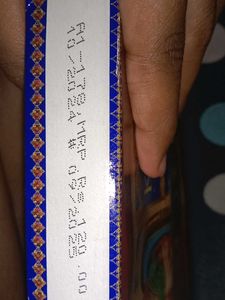 A1-179.MRP.RS=120.00
10/2024 # 09/2025